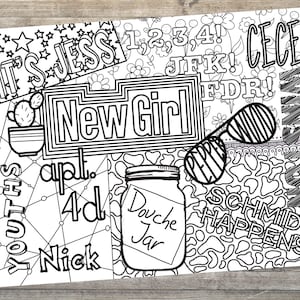 IT'S JESS
1,2,3,4!
JFK!
FDR!
CECE
New Girl
YOUTHS
apt.
4d
Nick
Douche
Jar
SCHMIDT
HAPPENS